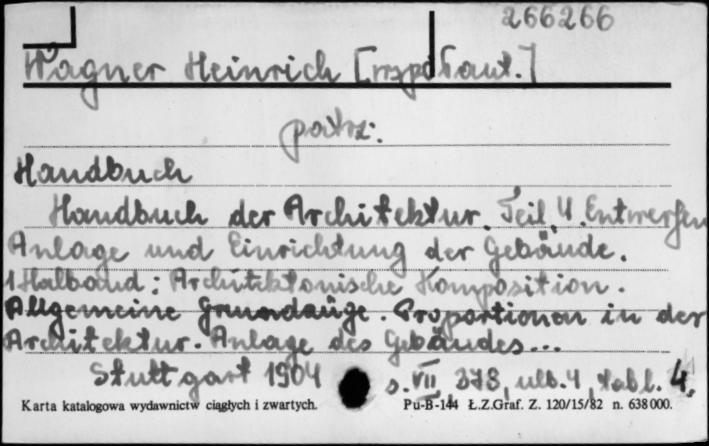 266266
Wagner Heinrich [współaut.]
patrz:
Handbuch
Handbuch der Architektur. Teil 4. Entwerfen
Anlage und Einrichtung der Gebäude.
1 Halbband: Architektonische Komposition.
Allgemeine Grundzüge. Proportionen in der
Architektur. Anlage des Gebäudes...
Stuttgart 1904 s. VII, 378, ulb. 4, tabl. 4.
Karta katalogowa wydawnictw ciągłych i zwartych. Pu-B-144 Ł.Z.Graf. Z. 120/15/82 n. 638000.